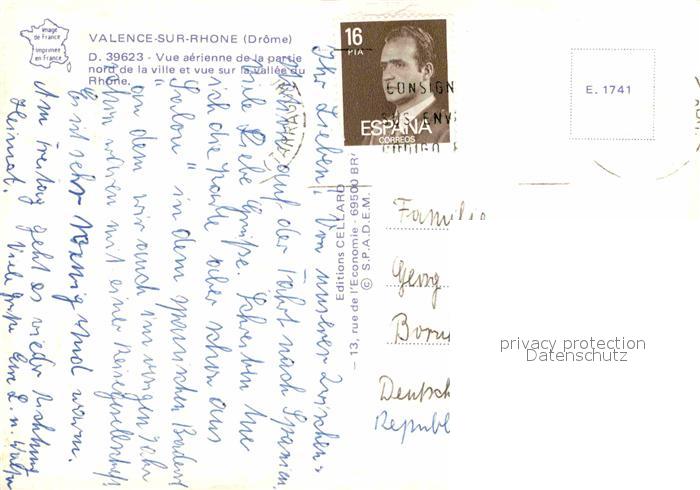 image
de France
Imprimée
en France
VALENCE-SUR-RHONE (Drôme)
D. 39623 - Vue aérienne de la partie
nord de la ville et vue sur la vallée du
Rhône.
16
PTA
ESPAÑA
CORREOS
CONSIGN
SUS ENV
CODIGO P
E. 1741
Editions CELLARD
13, rue de l'Economie - 69500 BR
© S.P.A.D.E.M.
Ihr Lieben! Von unserer Zwischen-
auf der Fahrt nach Spanien
viele liebe Grüße. Schreiben tue
ich die Karte aber schon aus
"Salou" in dem spanischen Badeort
an dem wir auch im vorigen Jahr
schon waren mit einer Reisegesellschaft
Es ist sehr sonnig und warm.
Am Freitag geht es wieder Richtung
Heimat. Viele Grüße Eure L. u.
Familie
Georg
Born
Deutsch
Republ
privacy protection
Datenschutz